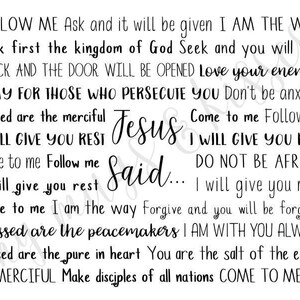 LOW ME Ask and it will be given I AM THE W
k first the kingdom of God Seek and you will
CK AND THE DOOR WILL BE OPENED Love your enem
AY FOR THOSE WHO PERSECUTE YOU Don't be anx
ed are the merciful Come to me Follow
LL GIVE YOU REST Jesus I WILL GIVE YOU R
e to me Follow me Said... DO NOT BE AFR
ill give you rest I will give you
e to me I am the way Forgive and you will be forg
ssed are the peacemakers I AM WITH YOU ALW
ed are the pure in heart You are the salt of the e
MERCIFUL Make disciples of all nations COME TO ME